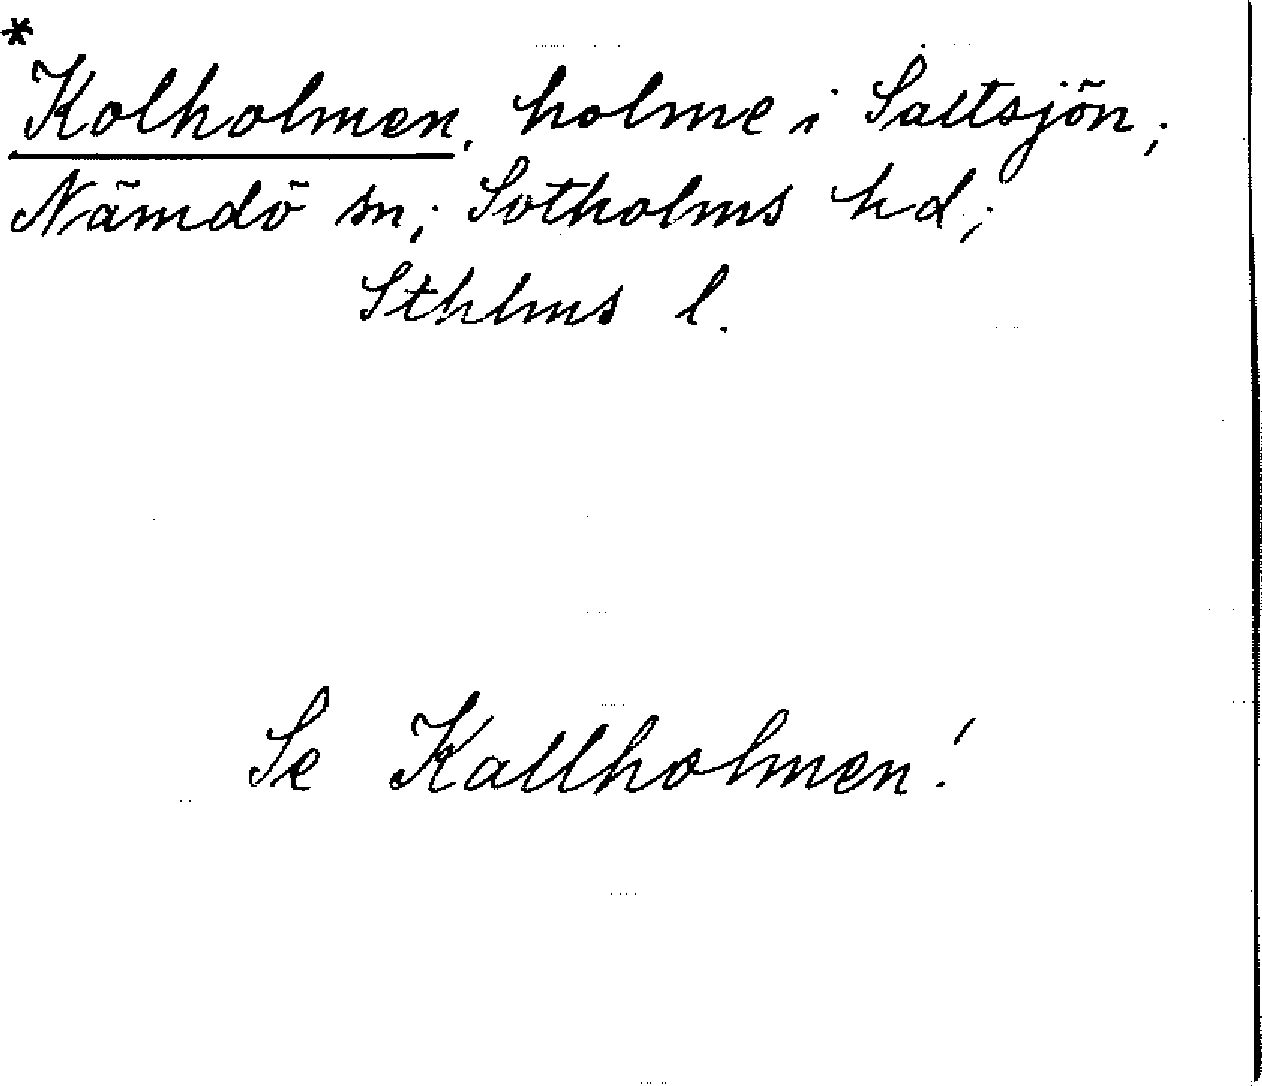 *
Kolholmen, holme i Saltsjön;
Nämdö sn; Sotholms hd;
Sthlms l.
Se Kallholmen!